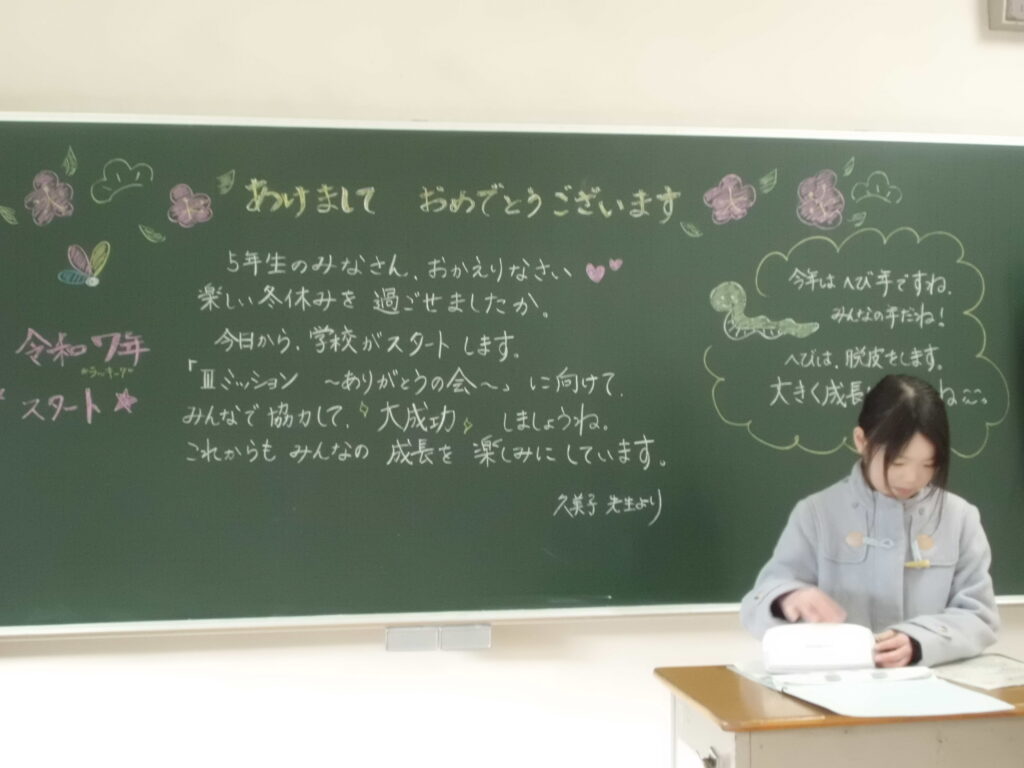 あけまして おめでとうございます
5年生のみなさん、おかえりなさい
楽しい冬休みを 過ごせましたか。
今日から、学校がスタートします。
「Ⅲミッション ～ありがとうの会～」に向けて、
みんなで協力して、大成功 しましょうね。
これからも みんなの 成長を 楽しみにしています。
久美子 先生より
令和7年
スタート
今年は へび年ですね。
みんなの年だね!
へびは、脱皮をします。
大きく成長 ね～。